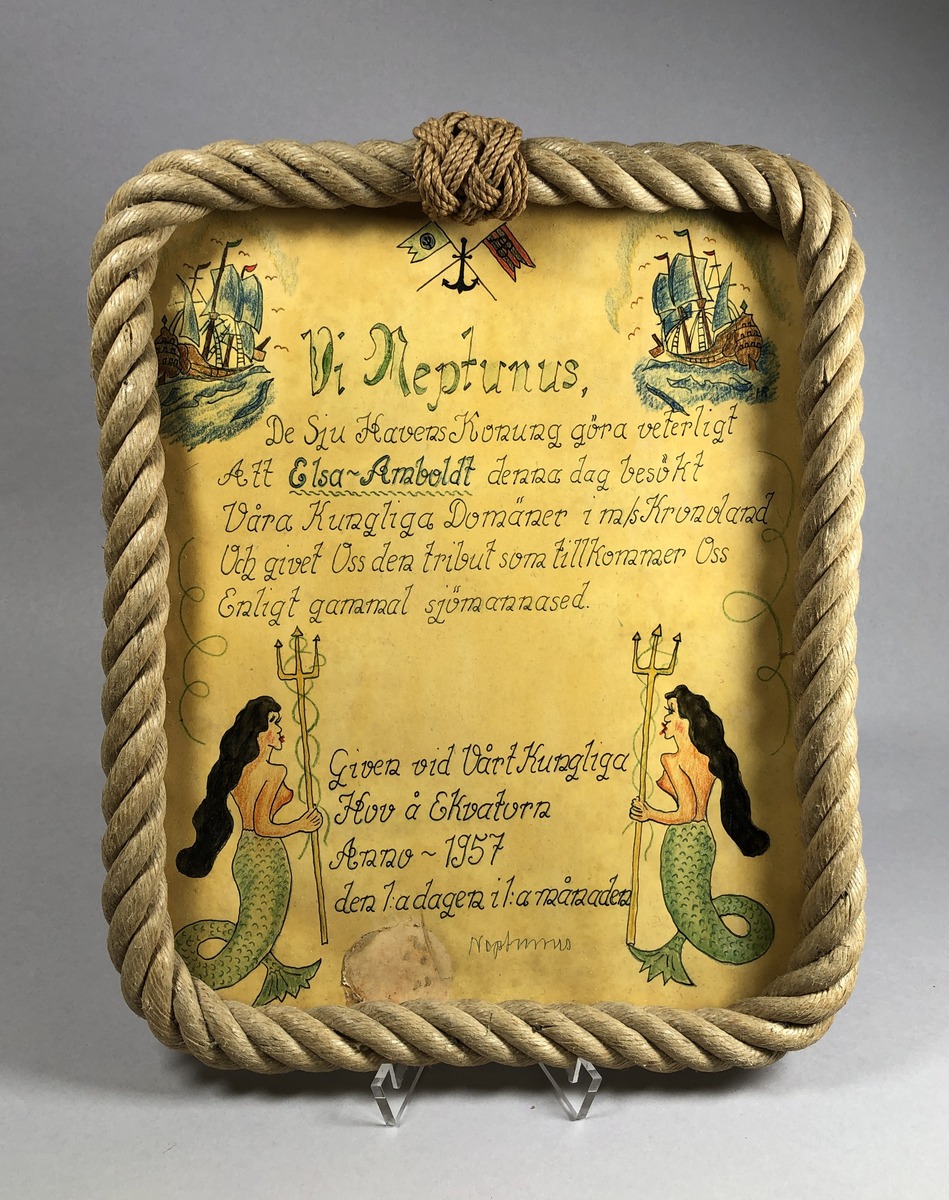 Vi Neptunus,
De Sju Havens Konung göra veterligt
Att Elsa~Amboldt denna dag besökt
Våra Kungliga Domäner i m/s Kronoland
Och givet Oss den tribut som tillkommer Oss
Enligt gammal sjömannased.
Given vid Vårt Kungliga
Hov å Ekvatorn
Anno~1957
den 1:a dagen i 1:a månaden
Neptunus